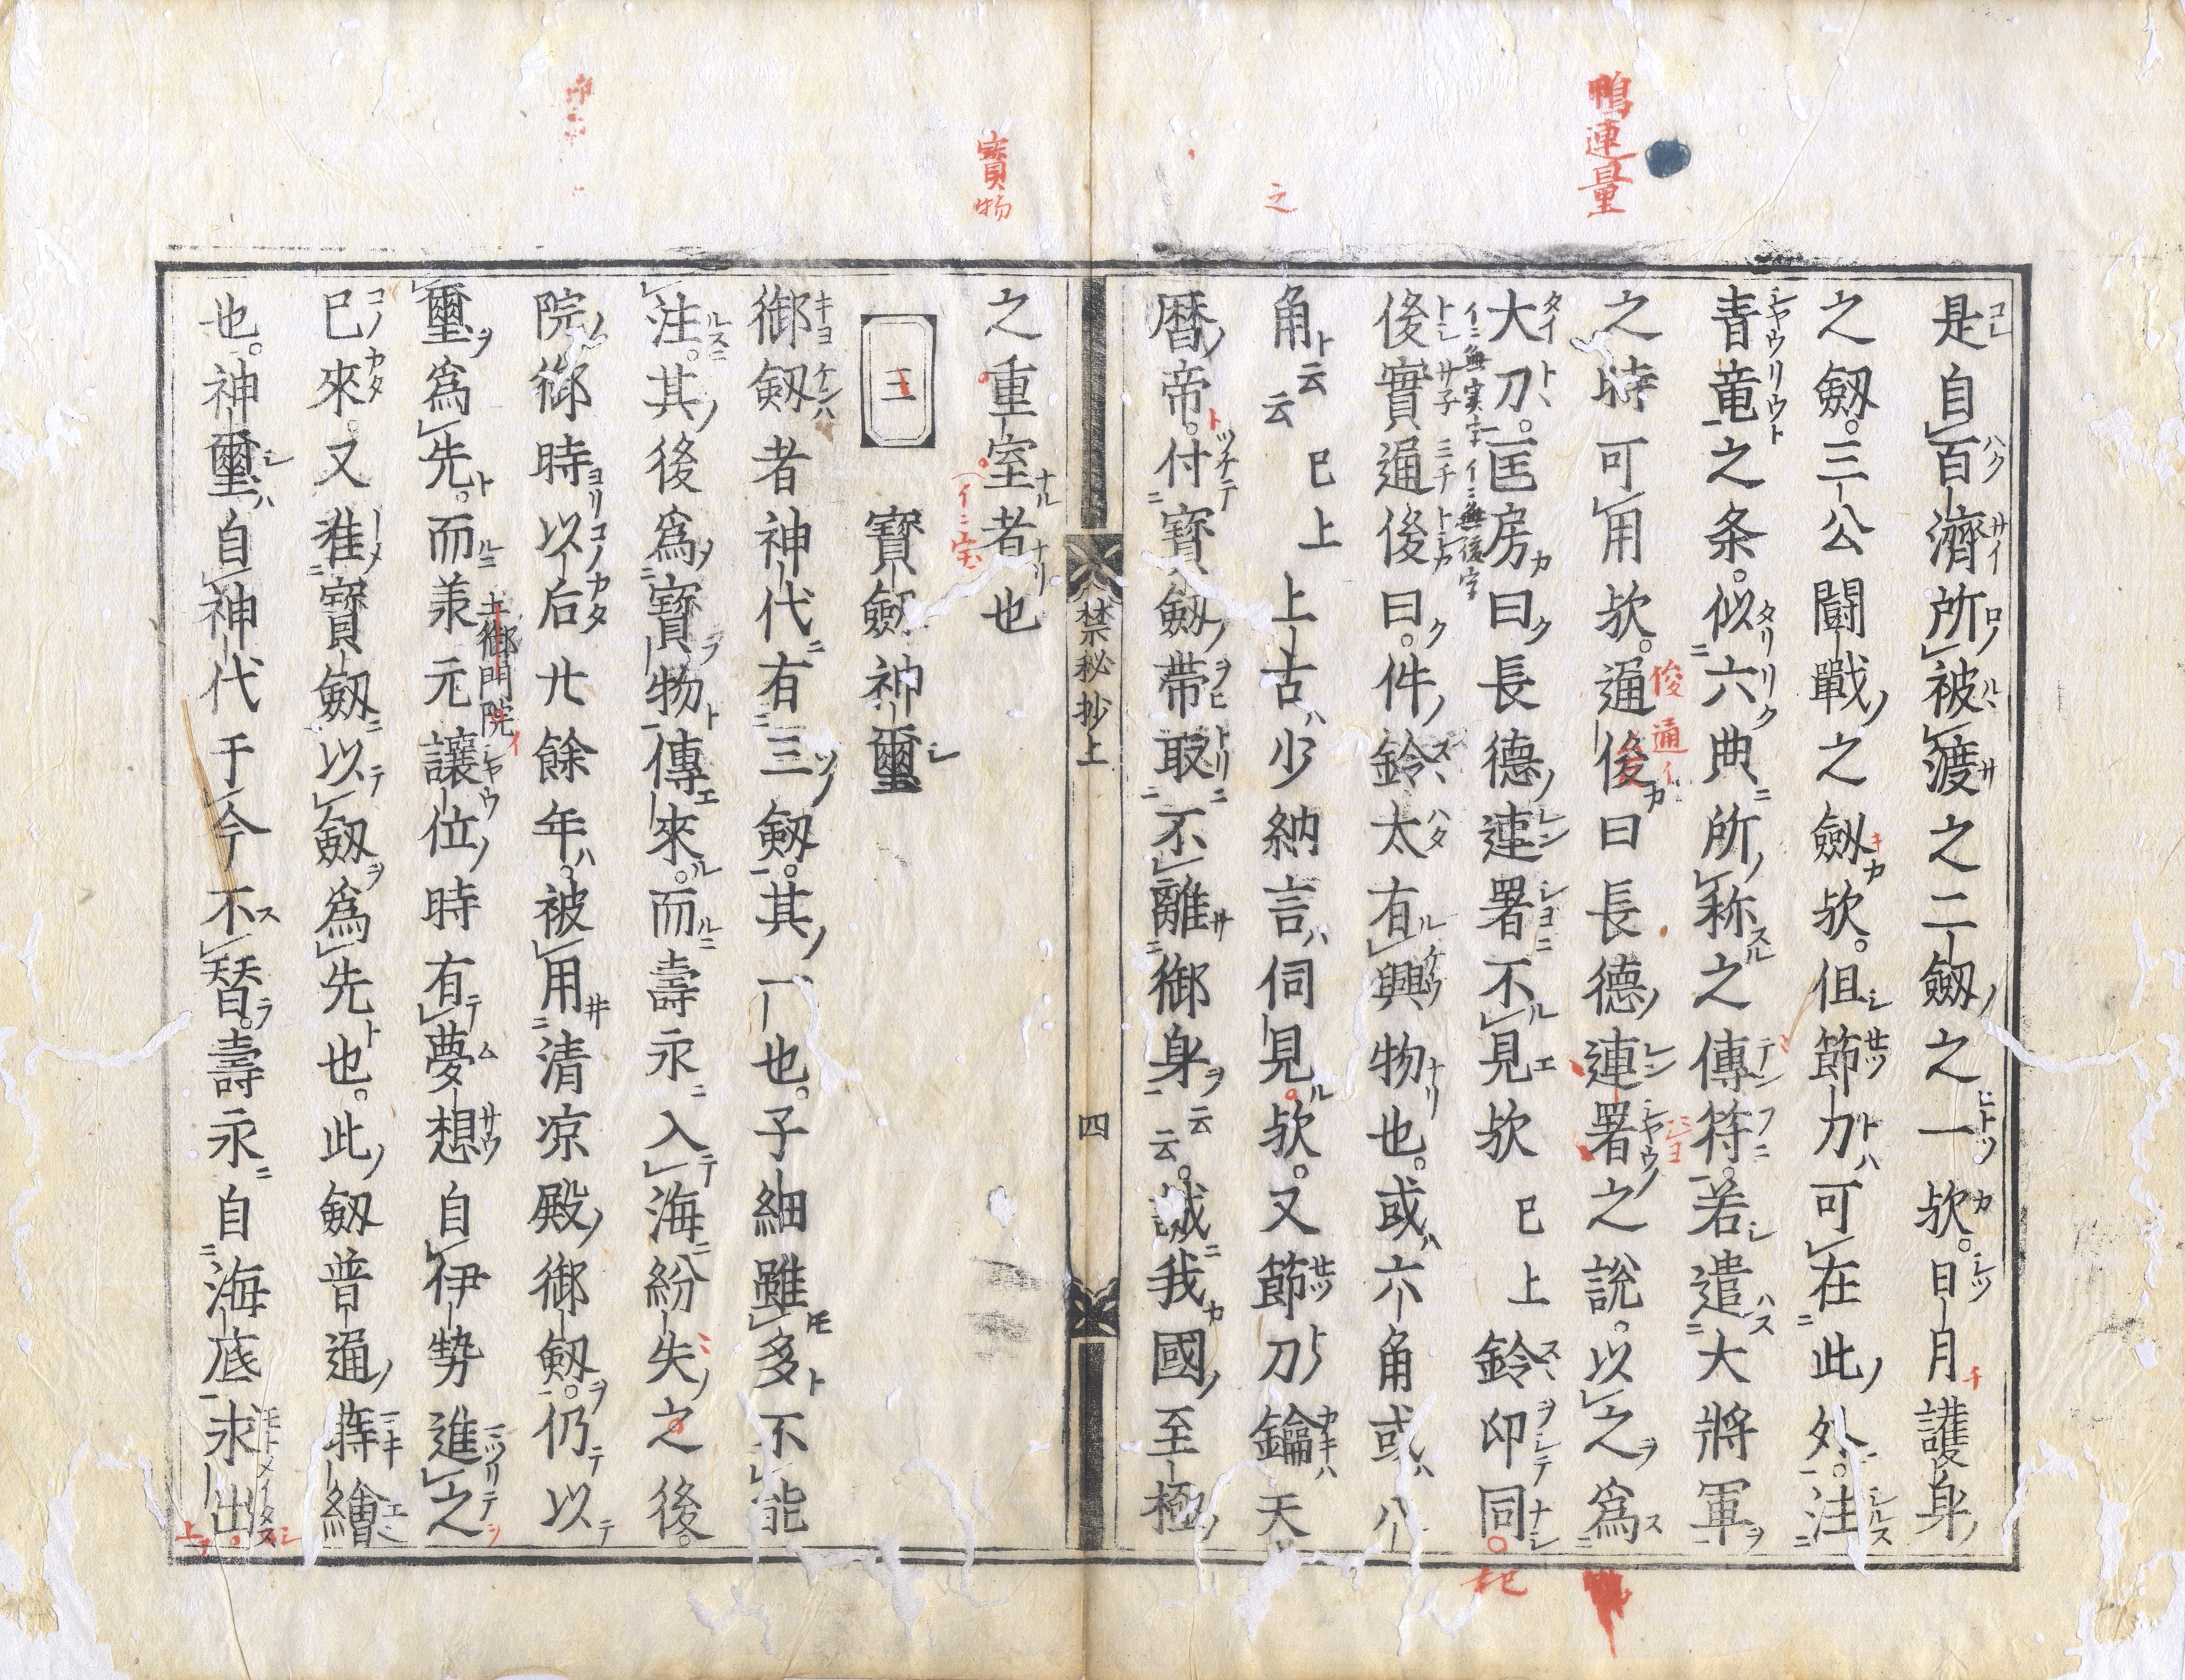 鴨連量
是自百濟所被渡之二劔之一歟。日月護身
之劔。三公闘戰之劔歟。但節力可在此外。注
青竜之条。似六典所称之傳符。若遣大將軍
之時可用歟。通俊曰長德連署之說。以之爲
俊通イ
大刀。匡房曰長德連署不見歟 已上 鈴印同
イニ無実字 イニ無後字
後實通後曰。件鈴太有興物也。或六角或八
角云云 已上 上古少納言伺見歟。又節刀鑰天
之
暦帝。付寳劔帶取不離御身云云。誠我國至極
禁秘抄上 四
之重室者也
イニ宝
寳物
三 寳劔神璽
御劔者神代有三劔。其一也。子細雖多不能
注。其後爲寳物傳來。而壽永入海紛失之後。
院御時以后廿餘年。被用清凉殿御劔。仍以
璽爲先。而羕元讓位時有夢想自伊勢進之
土御門院イ
已來。又准寳劔以劔爲先也。此劔普通蒔繪
也。神璽自神代于今不替。壽永自海底求出